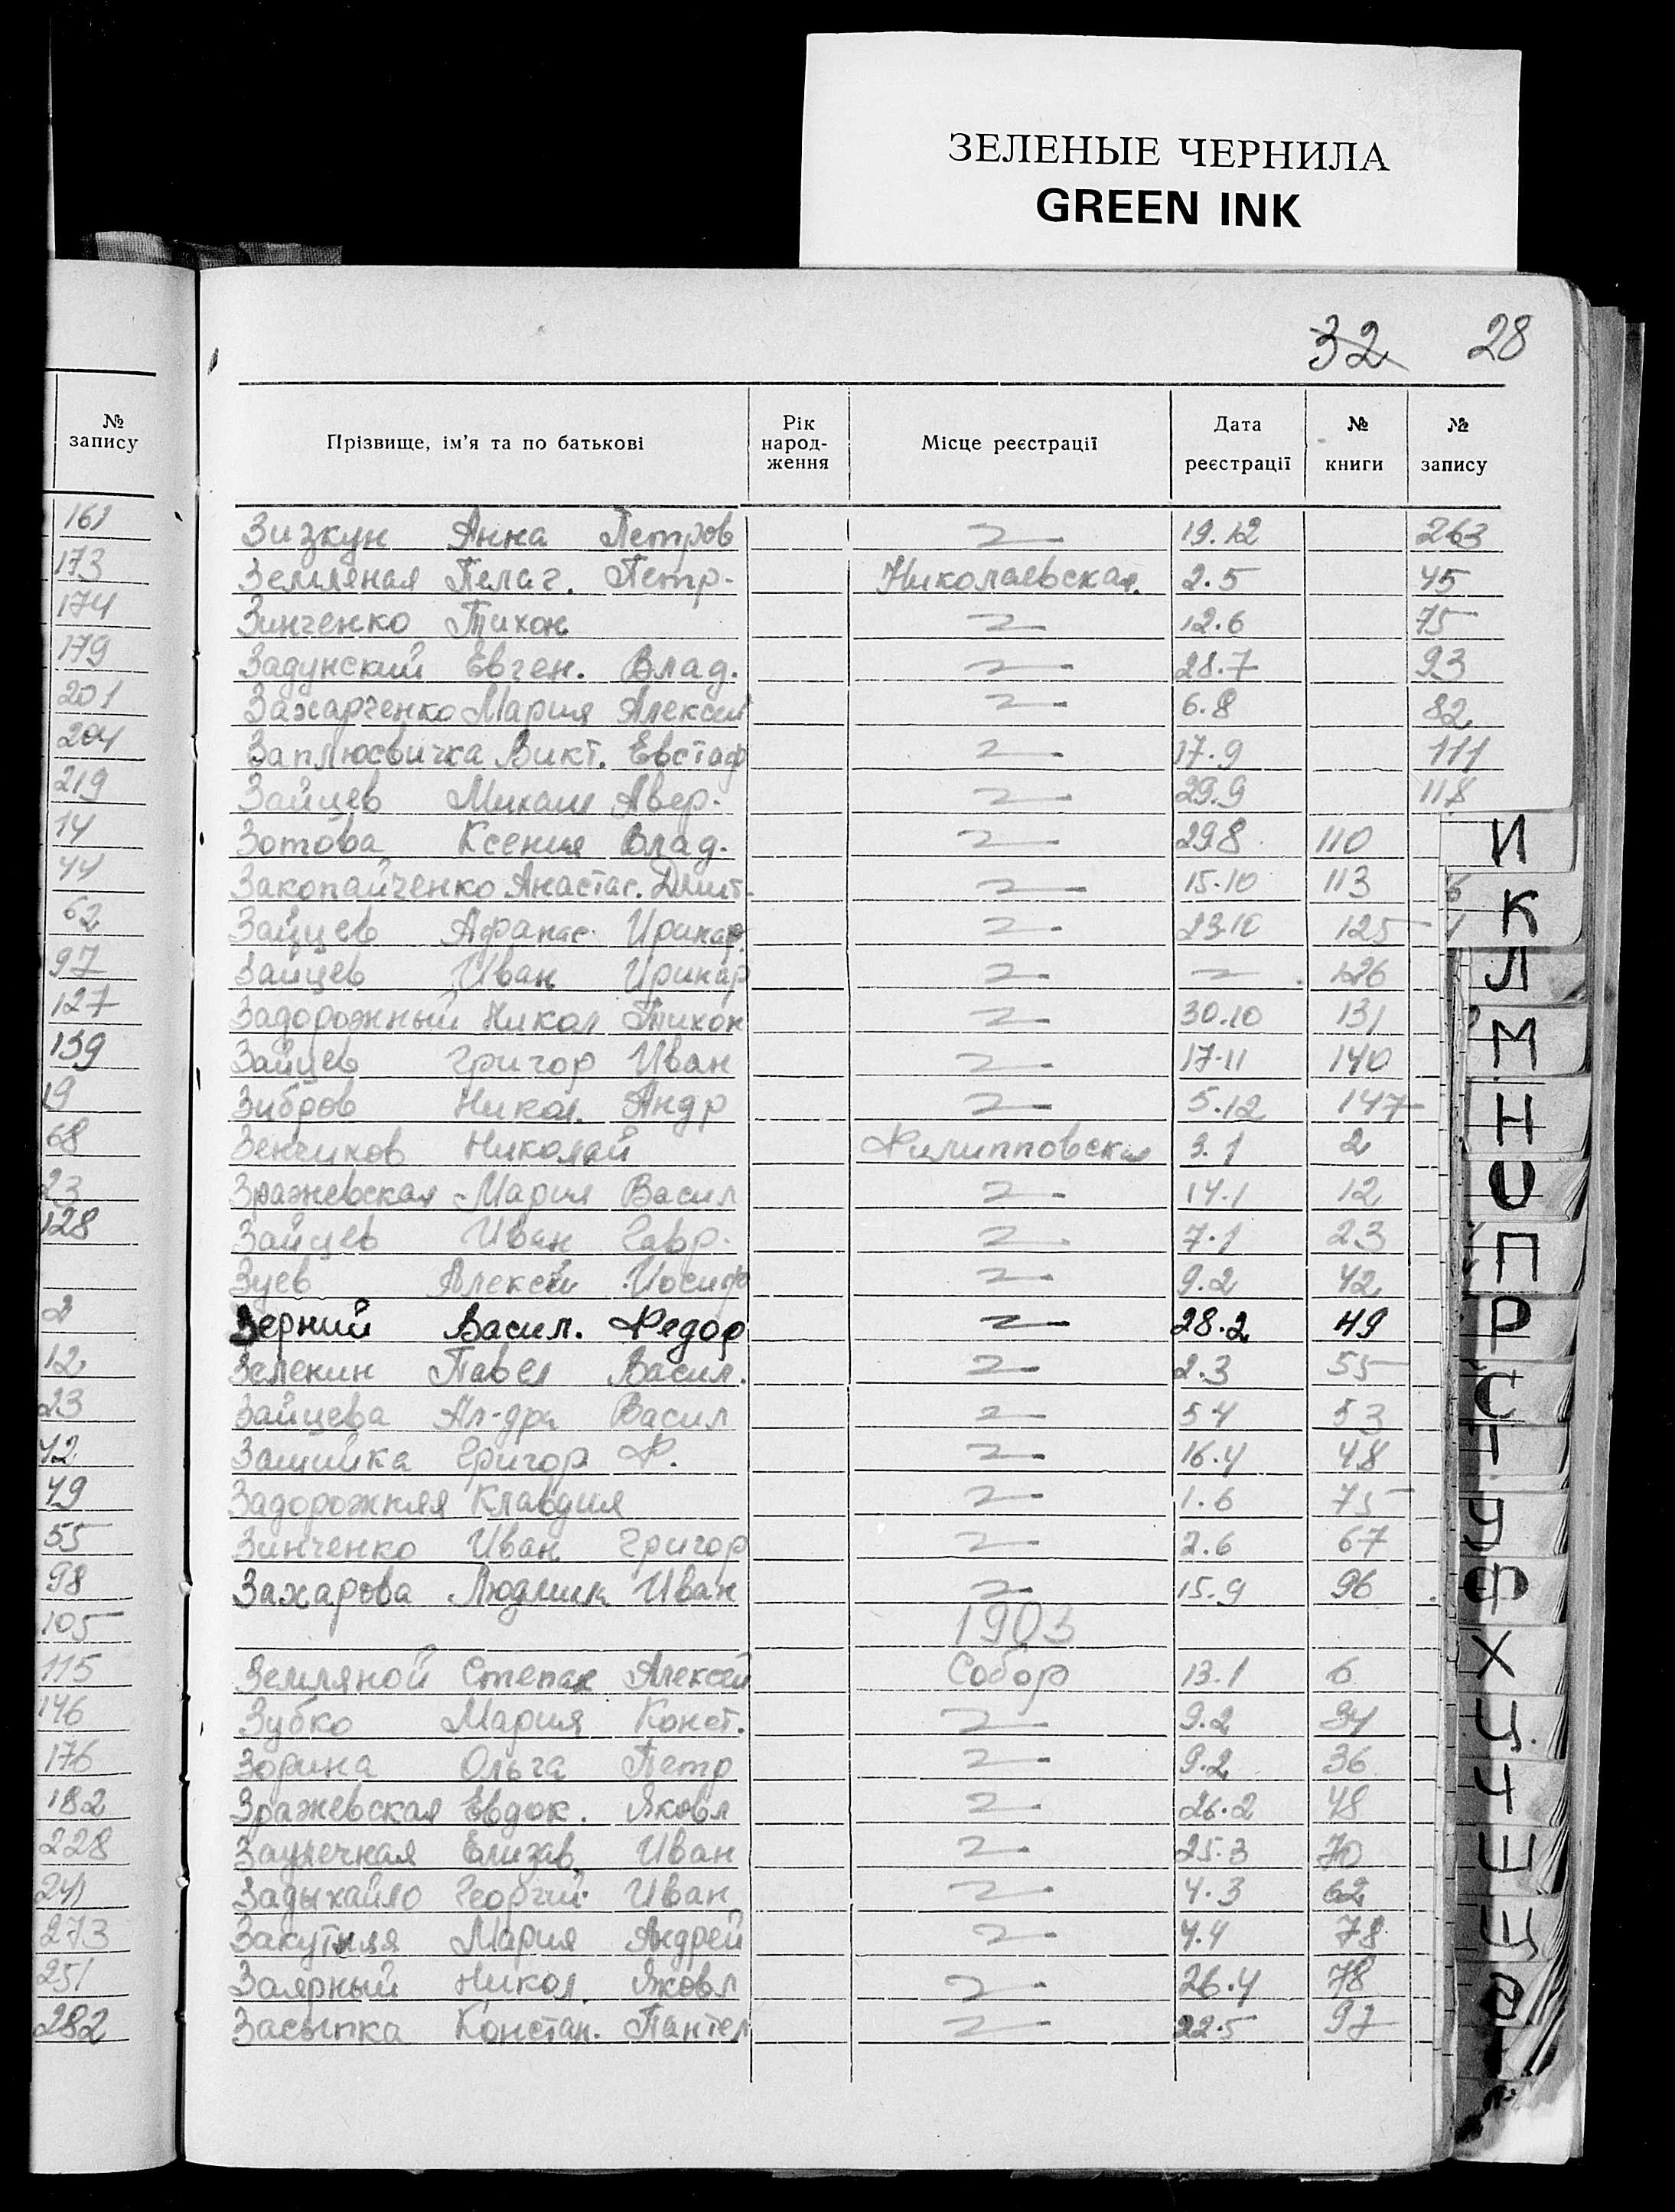 ЗЕЛЕНЫЕ ЧЕРНИЛА
GREEN INK
32 28
№ запису
161
173
174
179
201
204
219
14
44
62
97
127
139
19
68
23
128
2
12
23
42
49
55
98
105
115
146
176
182
228
241
273
251
282
Прізвище, ім'я та по батькові Рік народ-ження Місце реєстрації Дата реєстрації № книги № запису
Зизкун Анна Петров 19.12 263
Земляная Пелаг. Петр. Николаевская. 2.5 45
Зинченко Тихон 12.6 75
Задунский Евген. Влад. 28.7 93
Захарченко Мария Алексей 6.8 82
Заплюсвичка Викт. Евстаф 17.9 111
Зайцев Михаил Авер. 29.9 118
Зотова Ксения Влад. 29.8 110
Закопайченко Анастас. Дмит. 15.10 113
Зайцев Афанас. Иринар. 23.10 125
Зайцев Иван Иринар 126
Задорожный Никол Тихон 30.10 131
Зайцев Григор Иван 17.11 140
Зибров Никол. Андр 5.12 147
Николай Филипповская 3.1 2
Зражевская Мария Васил 14.1 12
Зайцев Иван Гавр. 7.1 23
Зуев Алексей Иосиф 9.2 42
Зерний Васил. Федор 28.2 49
Зеленин Павел Васил. 2.3 55
Зайцева Ал-дра Васил 5.4 53
Григор Ф. 16.4 48
Задорожняя Клавдия 1.6 75
Зинченко Иван Григор 2.6 67
Захарова Людмила Иван 15.9 96
1903
Земляной Степан Алексей Собор 13.1 6
Зубко Мария Конст. 9.2 34
Зорина Ольга Петр 9.2 36
Зражевская Евдок. Яковл 26.2 48
Заузечная Елизав. Иван 25.3 70
Задыхайло Георгий Иван 4.3 62
Закутняя Мария Андрей 4.4 78
Заярный Никол. Яковл 26.4 78
Засыпка Констан. Пантел 22.5 97
И
К
Л
М
Н
О
П
Р
С
Т
У
Ф
Х
Ц
Ч
Ш
Щ